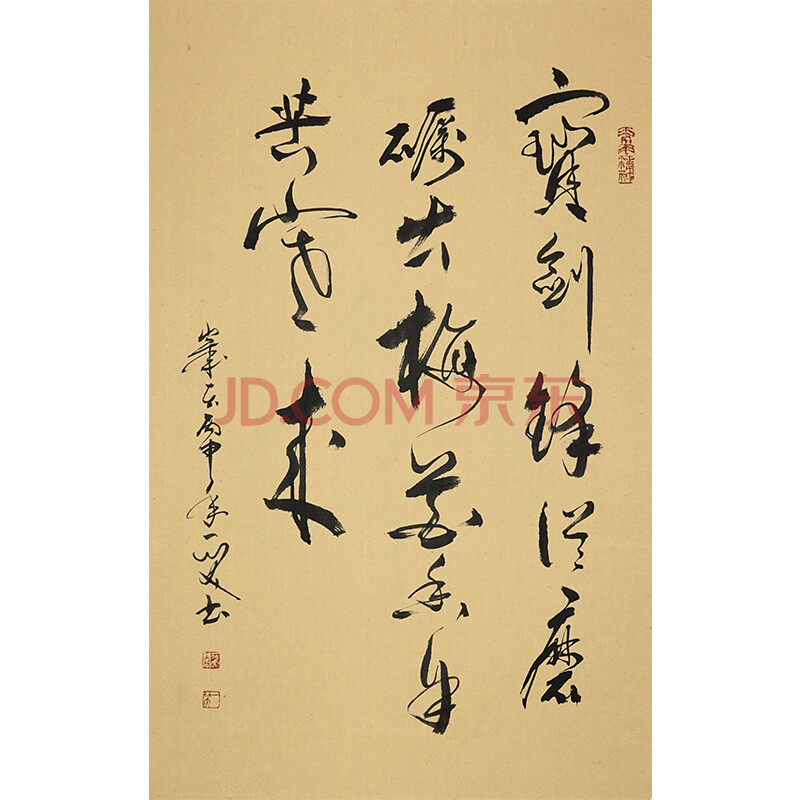 寶劍鋒從磨
礪出梅花香自
苦寒來
歲在丙申年
書
JD.COM 京东